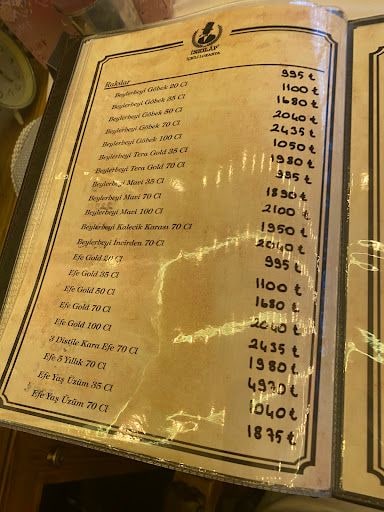 İNKILAP
İÇKİLİ LOKANTA
Rakılar
Beylerbeyi Göbek 20 Cl 995 ₺
Beylerbeyi Göbek 35 Cl 1100 ₺
Beylerbeyi Göbek 50 Cl 1680 ₺
Beylerbeyi Göbek 70 Cl 2040 ₺
Beylerbeyi Göbek 100 Cl 2435 ₺
Beylerbeyi Tera Gold 35 Cl 1050 ₺
Beylerbeyi Tera Gold 70 Cl 1980 ₺
Beylerbeyi Mavi 35 Cl 995 ₺
Beylerbeyi Mavi 70 Cl 1890 ₺
Beylerbeyi Mavi 100 Cl 2100 ₺
Beylerbeyi Kalecik Karası 70 Cl 1950 ₺
Beylerbeyi İncirden 70 Cl 2040 ₺
Efe Gold 20 Cl 995 ₺
Efe Gold 35 Cl 1100 ₺
Efe Gold 50 Cl 1680 ₺
Efe Gold 70 Cl 2040 ₺
Efe Gold 100 Cl 2435 ₺
3 Distile Kara Efe 70 Cl 1980 ₺
Efe 5 Yıllık 70 Cl 4930 ₺
Efe Yaş Üzüm 35 Cl 1040 ₺
Efe Yaş Üzüm 70 Cl 1875 ₺